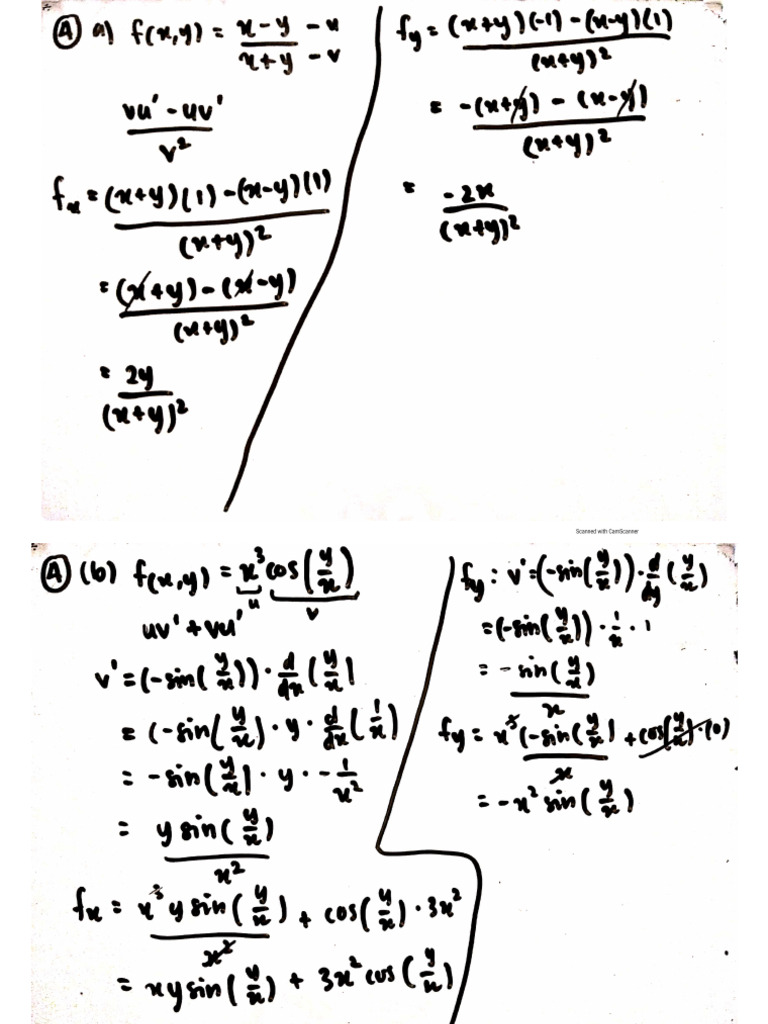 Ⓐ a) f(x,y) = x-y - u
x+y - v
vu' - uv'
v²
fx = (x+y)(1) - (x-y)(1)
(x+y)²
= (x+y) - (x-y)
(x+y)²
= 2y
(x+y)²
fy = (x+y)(-1) - (x-y)(1)
(x+y)²
= -(x+y) - (x-y)
(x+y)²
= -2x
(x+y)²
Scanned with CamScanner
Ⓐ (b) f(x,y) = x³ cos(y/x)
u v
uv' + vu'
v' = (-sin(y/x)) · d/dx (y/x)
= (-sin(y/x) · y · d/dx (1/x)
= -sin(y/x) · y · -1/x²
= y sin(y/x)
x²
fx = x³ y sin(y/x) + cos(y/x) · 3x²
x²
= xy sin(y/x) + 3x² cos(y/x)
fy : v' = (-sin(y/x)) · d/dy (y/x)
= (-sin(y/x)) · 1/x · 1
= -sin(y/x)
x
fy = x³ (-sin(y/x) + cos(y/x) · (0)
x
= -x² sin(y/x)